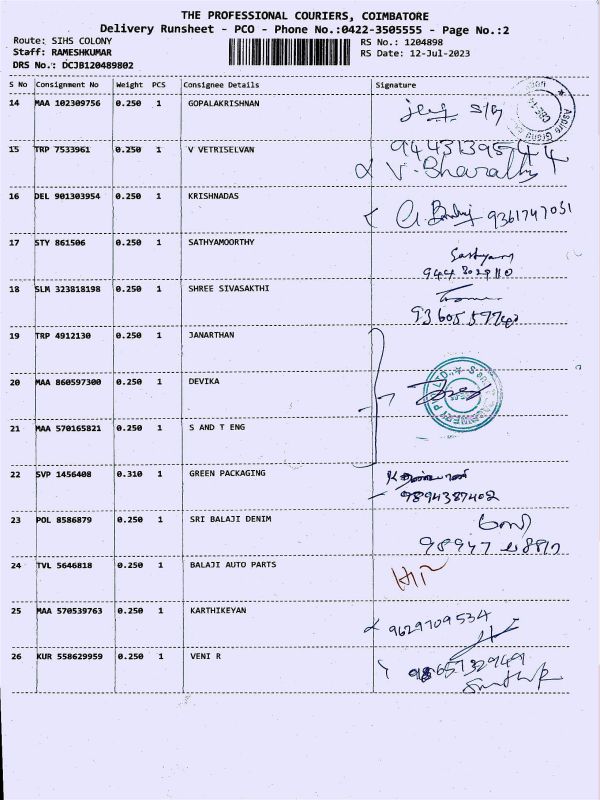 THE PROFESSIONAL COURIERS, COIMBATORE
Delivery Runsheet - PCO - Phone No.:0422-3505555 - Page No.:2
Route: SIHS COLONY
RS No.: 1204898
Staff: RAMESHKUMAR
RS Date: 12-Jul-2023
DRS No.: DCJB120489802
S No Consignment No Weight PCS Consignee Details Signature
14 MAA 102309756 0.250 1 GOPALAKRISHNAN
15 TRP 7533961 0.250 1 V VETRISELVAN
V. Bharathi
16 DEL 901303954 0.250 1 KRISHNADAS
9361747031
17 STY 861506 0.250 1 SATHYAMOORTHY
18 SLM 323818198 0.250 1 SHREE SIVASAKTHI
19 TRP 4912130 0.250 1 JANARTHAN
20 MAA 860597300 0.250 1 DEVIKA
21 MAA 570165821 0.250 1 S AND T ENG
22 SVP 1456408 0.310 1 GREEN PACKAGING
9894387402
23 POL 8586879 0.250 1 SRI BALAJI DENIM
24 TVL 5646818 0.250 1 BALAJI AUTO PARTS
25 MAA 570539763 0.250 1 KARTHIKEYAN
9629709534
26 KUR 558629959 0.250 1 VENI R